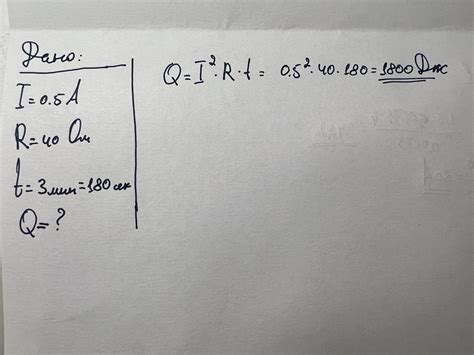 Дано:
I=0.5A
R=40 Ом
t=3мин=180сек
Q=?
Q=I²·R·t= 0.5²·40·180=1800Дж